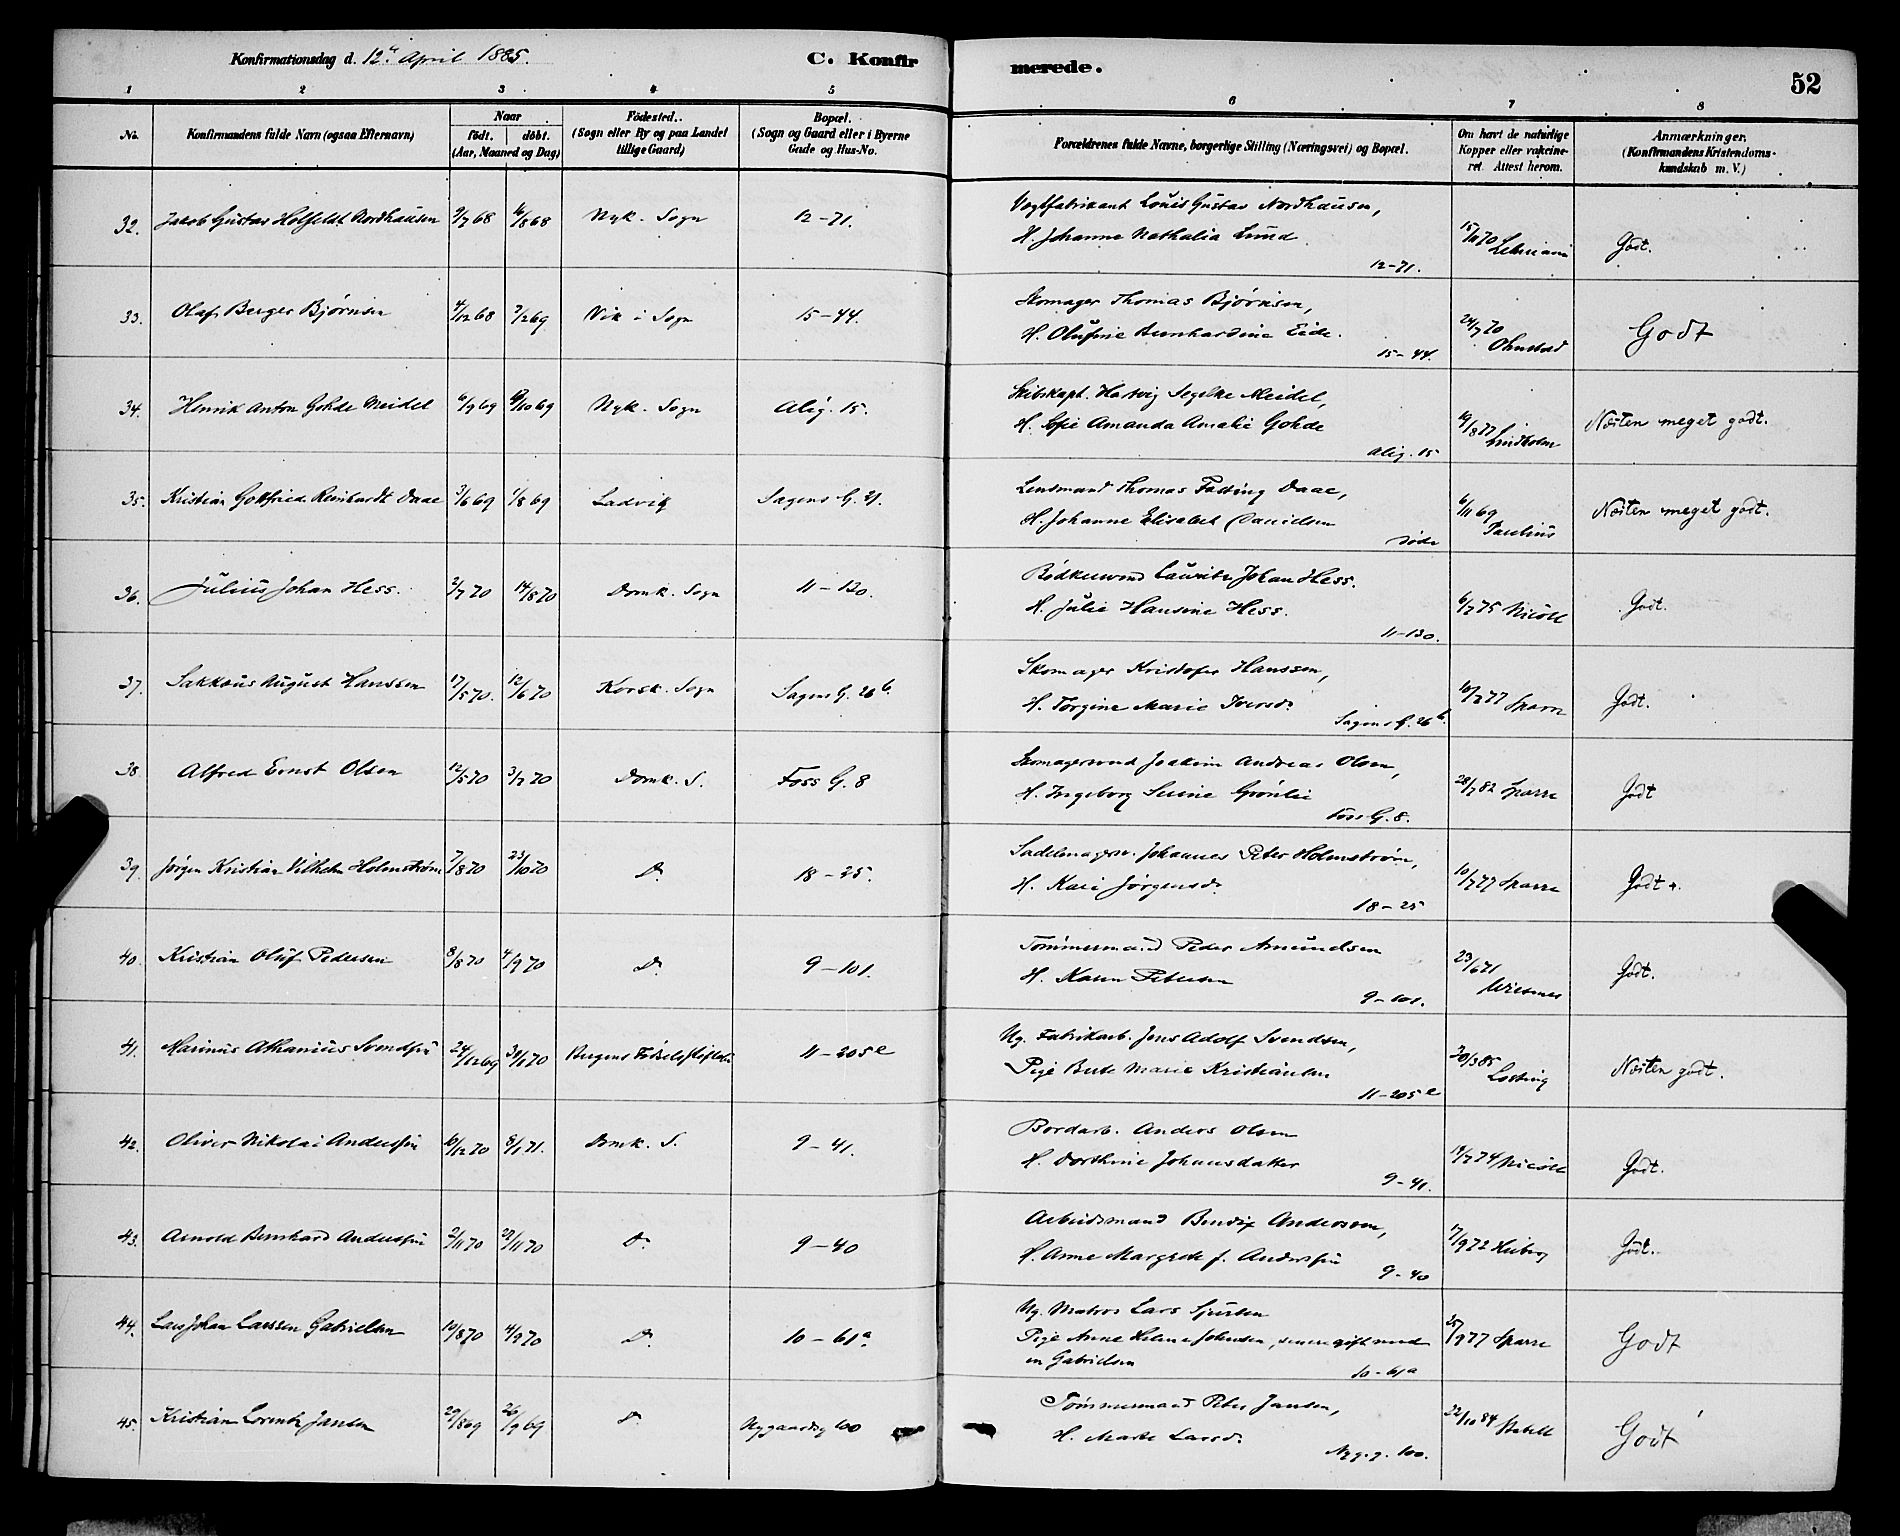 Konfirmationsdag d. 12te April 1885.
C. Konfirmerede.
52
1 2 3 4 5 6 7 8
No. Konfirmandens fulde Navn (ogsaa Efternavn) Naar födt. döbt. (Aar, Maaned og Dag) Födested. (Sogn eller By og paa Landet tillige Gaard) Bopæl. (Sogn og Gaard eller i Byerne Gade og Hus-No. Forældrenes fulde Navne, borgerlige Stilling (Næringsvei) og Bopæl. Om havt de naturlige Kopper eller vakcineret. Attest herom. Anmærkninger. (Konfirmandens Kristendomskundskab m. V.)
32. Jakob Gustav Holfeldt Nordhausen 9/7 68 6/8 68 Nyk. Sogn 12-71. Vogtfabrikant Louis Gustav Nordhausen,
H. Johanne Nathalia Lund 12-71. 70 Godt.
33. Olaf Berger Bjørnsen 4/12 68 7/2 69 Vik i Sogn 15-44. Skomager Thomas Bjørnsen,
H. Olufine Bernhardine Eide. 15-44. 24/7 70 Ohnstad Godt
34. Henrik Anton Gohde Meidel 6/9 69 69 Nyk. Sogn Alig. 15. Skibskapt. Hartvig Segelke Meidel,
H. Sofie Amanda Amalie Gohde Alig. 15 19/8 77 Lindholm Næsten meget godt.
35. Kristian Gotfried Reinhardt Daae 3/6 69 1/8 69 Ladvik Sagens G. 21. Lensmand Thomas Fasting Daae,
H. Johanne Elisabet Danielsen døde 6/11 69 Paulius Næsten meget godt.
36. Julius Johan Hess. 2/7 70 14/8 70 Domk. Sogn 11-130. Bødkersvend Lauritz Johan Hess.
H. Julie Hansine Hess. 11-130. 6/7 75 Nicoll Godt.
37. Sakkæus August Hanssen 17/5 70. 12/6 70 Korsk. Sogn Sagens G. 26b. Skomager Kristofer Hanssen,
H. Torgine Marie Iversd. Sagens G. 26b. 10/7 77 Sparre Godt.
38. Alfred Ernst Olsen 12/5 70 3/7 70 Domk. S. Foss G. 8 Skomagersvend Joakim Andreas Olsen,
H. Ingeborg Serine Grønlie Foss G. 8. 28/7 82 Sparre Godt
39. Jørgen Kristian Vilhelm Holmstrøm 7/8 70 23/10 70 Do. 18-25. Sadelmagersv. Johannes Peter Holmstrøm,
H. Kari Jørgensd. 18-25 10/7 77 Sparre Godt +.
40. Kristian Oluf Pedersen 8/8 70 4/9 70 Do. 9-101. Tømmermand Peder Amundsen
H. Karen Petersen 9-101. 23/6 71 Godt.
41. Marinus Athanius Svendsen 24/12 69 70 Bergens Fødselsstiftelse 11-205e Ug. Fabrikarb. Jens Adolf Svendsen,
Pige Berte Marie Kristiansen 11-205e 30/3 85 Losting Næsten godt.
42. Oliver Nikolai Anderssen 10/12 70 8/1 71. Domk. S. 9-41. Bordarb. Anders Olsen
H. Dorthine Johannsdatter 9-41. 14/7 74 Nicoll Godt.
43. Arnold Bernhard Anderssen 2/11 70 27/11 70 Do. 9-40 Arbeidsmand Bendix Anderssen,
H. Anne Margrete f. Anderssen 9-40 17/9 72 Heiberg Godt.
44. Lars Johan Larssen Gabrielsen 10/8 70 4/9 70 Do. 10-61a Ug. Matros Lars Sjursen
Pige Anne Helene Johnsen, senere gift med
en Gabrielsen 10-61a 77 Sparre Godt
45. Kristian Lorentz Jansen 29/8 69 26/9 69 Do. Nygaardsg 100 Tømmermand Peter Jansen,
H. Marte Larsd. Nyg. g. 100. 22/10 84 Stabell Godt